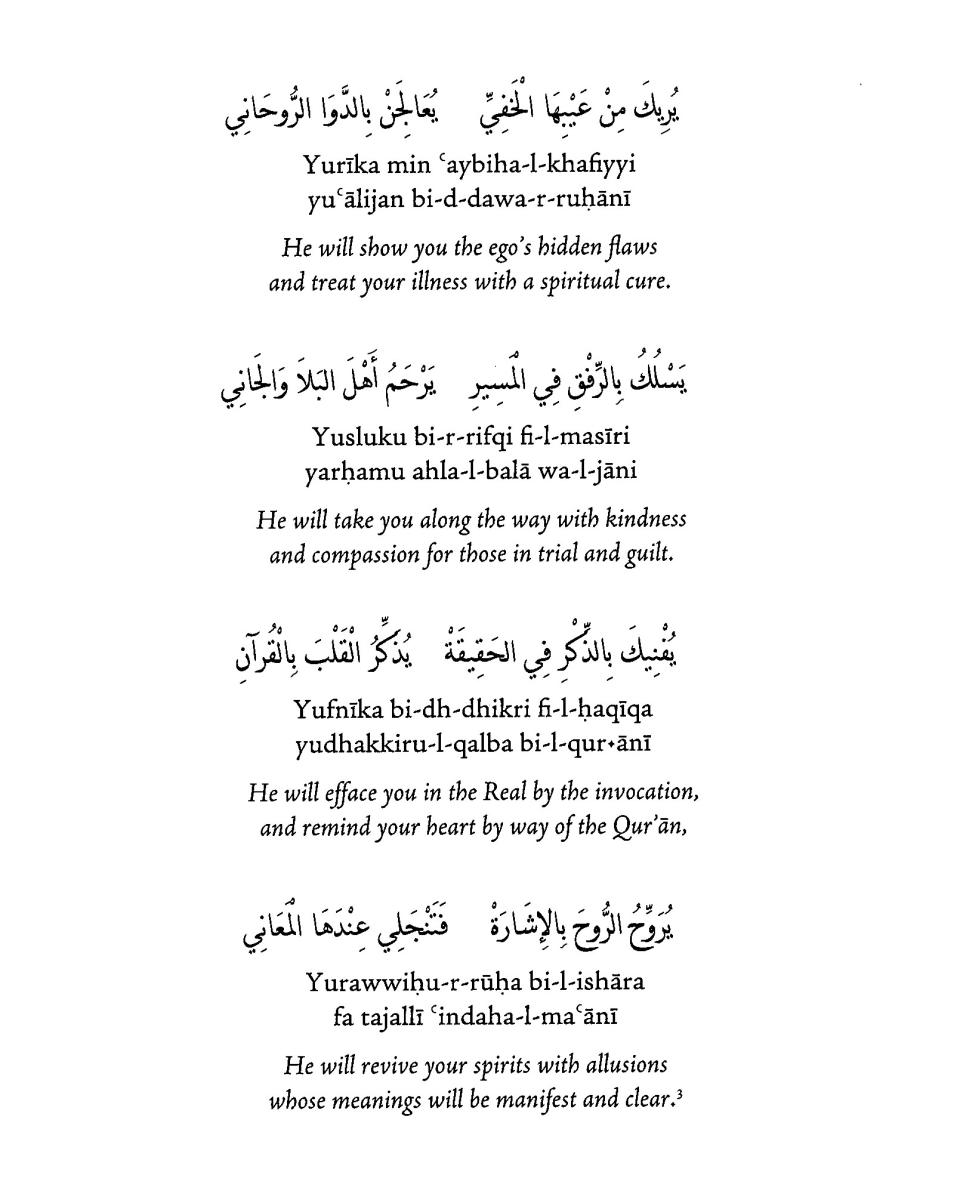 يُرِيكَ مِنْ عَيْبِهَا الْخَفِيِّ يُعَالِجَنْ بِالدَّوَا الرُّوحَانِي
Yurīka min ʿaybiha-l-khafiyyi
yuʿālijan bi-d-dawa-r-ruḥānī
He will show you the ego’s hidden flaws
and treat your illness with a spiritual cure.
يَسْلُكُ بِالرِّفْقِ فِي الْمَسِيرِ يَرْحَمُ أَهْلَ البَلاَ وَالْجَانِي
Yusluku bi-r-rifqi fi-l-masīri
yarḥamu ahla-l-balā wa-l-jāni
He will take you along the way with kindness
and compassion for those in trial and guilt.
يُفْنِيكَ بِالذِّكْرِ فِي الحَقِيقَةْ يُذَكِّرُ الْقَلْبَ بِالْقُرآنِ
Yufnīka bi-dh-dhikri fi-l-ḥaqīqa
yudhakkiru-l-qalba bi-l-qur˖ānī
He will efface you in the Real by the invocation,
and remind your heart by way of the Qur’ān,
يُرَوِّحُ الرُّوحَ بِالإِشَارَةْ فَتَنْجَلِي عِنْدَهَا الْمَعَانِي
Yurawwiḥu-r-rūḥa bi-l-ishāra
fa tajallī ʿindaha-l-maʿānī
He will revive your spirits with allusions
whose meanings will be manifest and clear.³